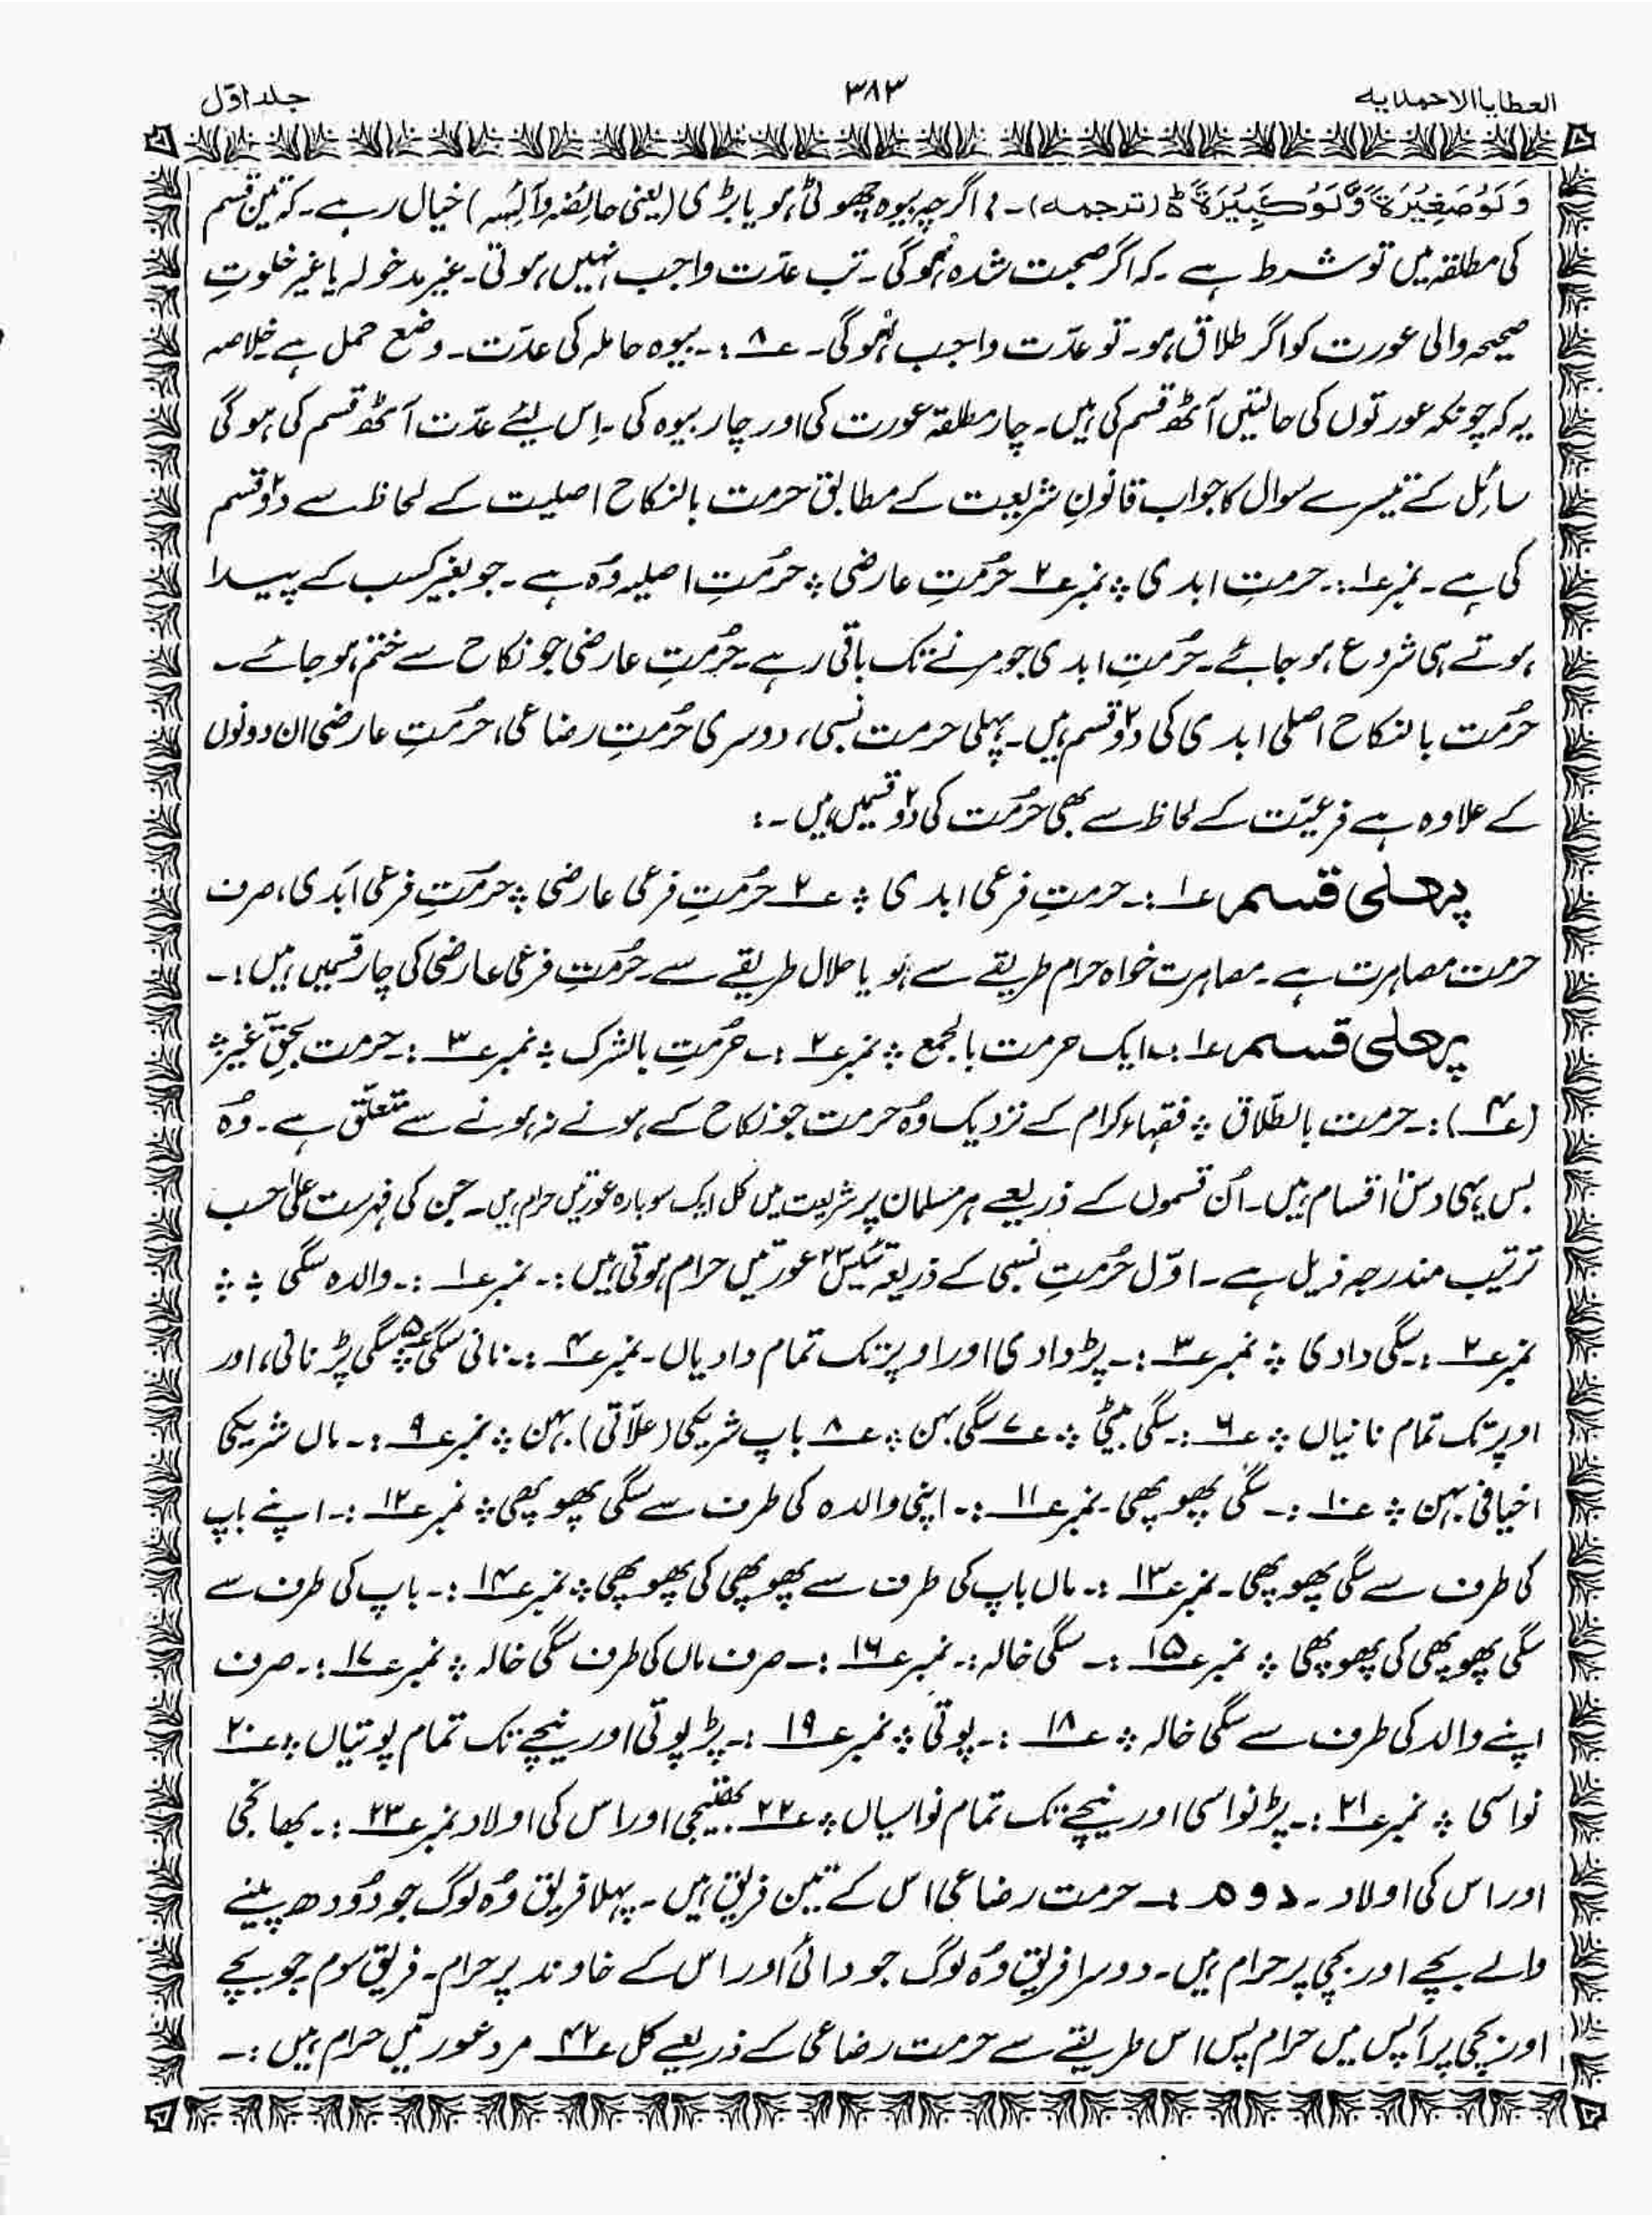 العطایا الاحمدایه ۳۸۳ جلد اوّل
وَلَوْصَغِیْرَۃً وَّلَوْکَبِیْرَۃً ط (ترجمہ)۔ اگرچہ بیوہ چھوٹی ہو یا بڑی (یعنی حائضہ وآئسہ) خیال رہے۔ کہ تین قسم
کی مطلقہ میں تو شرط ہے۔ کہ اگر صحبت شدہ نہ ہوگی۔ تب عدّت واجب نہیں ہوتی۔ غیر مدخولہ یا غیر خلوتِ
صحیحہ والی عورت کو اگر طلاق ہو۔ تو عدّت واجب نہ ہوگی۔ ع۸:۔ بیوہ حاملہ کی عدّت۔ وضع حمل ہے خلاصہ
یہ کہ چونکہ عورتوں کی حالتیں آٹھ قسم کی ہیں۔ چار مطلقہ عورت کی اور چار بیوہ کی۔ اِس لیئے عدّت آٹھ قسم کی ہوگی
سائل کے تیسرے سوال کا جواب قانونِ شریعت کے مطابق حرمت بالنکاح اصلیت کے لحاظ سے دو۲ قسم
کی ہے۔ نمبر ع۱:۔ حرمتِ ابدی ؞ نمبر ع۲ حُرمَتِ عارضی ؞ حُرمَتِ اصلیہ وُہ ہے۔ جو بغیر کسب کے پیدا
ہوتے ہی شروع ہو جائے۔ حُرمتِ ابدی جو مرنے تک باقی رہے۔ حُرمتِ عارضی جو نکاح سے ختم ہو جائے۔
حُرمت بالنکاح اصلی ابدی کی دو۲ قسم ہیں۔ پہلی حرمت نسبی، دوسری حُرمتِ رضاعی، حُرمتِ عارضی ان دونوں
کے علاوہ ہے فرعیّت کے لحاظ سے بھی حُرمت کی دو۲ قسمیں ہیں۔:
پہلی قسم ع۱:۔ حرمتِ فرعی ابدی ؞ ع۲ حُرمتِ فرعی عارضی ؞ حُرمَتِ فرعی اَبدی، صرف
حرمت مصاہرت ہے۔ مصاہرت خواہ حرام طریقے سے ہو یا حلال طریقے سے۔ حُرمتِ فرعی عارضی کی چار قسمیں ہیں:۔
پہلی قسم ع۱:۔ ایک حرمت بالجمع ؞ نمبر ع۲:۔ حُرمتِ بالشرک ؞ نمبر ع۳:۔ حرمت بحقِّ غیر ؞
(ع۴):۔ حرمت بالطّلاق ؞ فقہاء کرام کے نزدیک وُہ حرمت جو نکاح کے ہونے نہ ہونے سے متعلّق ہے۔ وُہ
بس یہی دس۱۰ اقسام ہیں۔ اُن قسموں کے ذریعے ہر مسلمان پر شریعت میں کُل ایک سو بارہ عورتیں حرام ہیں۔ جن کی فہرست علیٰ حسب
ترتیب مندرجہ ذیل ہے۔ اوّل حُرمتِ نسبی کے ذریعہ تئیس۲۳ عورتیں حرام ہوتی ہیں:۔ نمبر ع۱:۔ والدہ سگی ؞ ؞
نمبر ع۲:۔ سگی دادی ؞ نمبر ع۳:۔ پڑدادی اور اوپر تک تمام دادیاں۔ نمبر ع۴:۔ نانی سگی ؞ ع۵ سگی پڑنانی، اور
اوپر تک تمام نانیاں ؞ ع۶:۔ سگی بیٹی ؞ ع۷ سگی بہن ؞ ع۸ باپ شریکی (علّاتی) بہن ؞ نمبر ع۹:۔ ماں شریکی
اخیافی بہن ؞ ع۱۰:۔ سگی پھوپھی۔ نمبر ع۱۱:۔ اپنی والدہ کی طرف سے سگی پھوپھی ؞ نمبر ع۱۲:۔ اپنے باپ
کی طرف سے سگی پھوپھی۔ نمبر ع۱۳:۔ ماں باپ کی طرف سے پھوپھی کی پھوپھی ؞ نمبر ع۱۴:۔ باپ کی طرف سے
سگی پھوپھی کی پھوپھی ؞ نمبر ع۱۵:۔ سگی خالہ:۔ نمبر ع۱۶:۔ صرف ماں کی طرف سگی خالہ ؞ نمبر ع۱۷:۔ صرف
اپنے والد کی طرف سے سگی خالہ ؞ ع۱۸:۔ پوتی ؞ نمبر ع۱۹:۔ پڑپوتی اور نیچے تک تمام پوتیاں ؞ ع۲۰
نواسی ؞ نمبر ع۲۱:۔ پڑنواسی اور نیچے تک تمام نواسیاں ؞ ع۲۲ بھتیجی اور اس کی اولاد نمبر ع۲۳:۔ بھانجی
اور اس کی اولاد۔ دوم:۔ حرمت رضاعی اس کے تین فریق ہیں۔ پہلا فریق وُہ لوگ جو دُودھ پینے
والے بچے اور بچی پر حرام ہیں۔ دوسرا فریق وُہ لوگ جو دائی اور اس کے خاوند پر حرام۔ فریق سوم جو بچے
اور بچی پر آپس میں حرام پس اس طریقے سے حرمت رضاعی کے ذریعے کل ع۴۲ مرد عورتیں حرام ہیں:۔